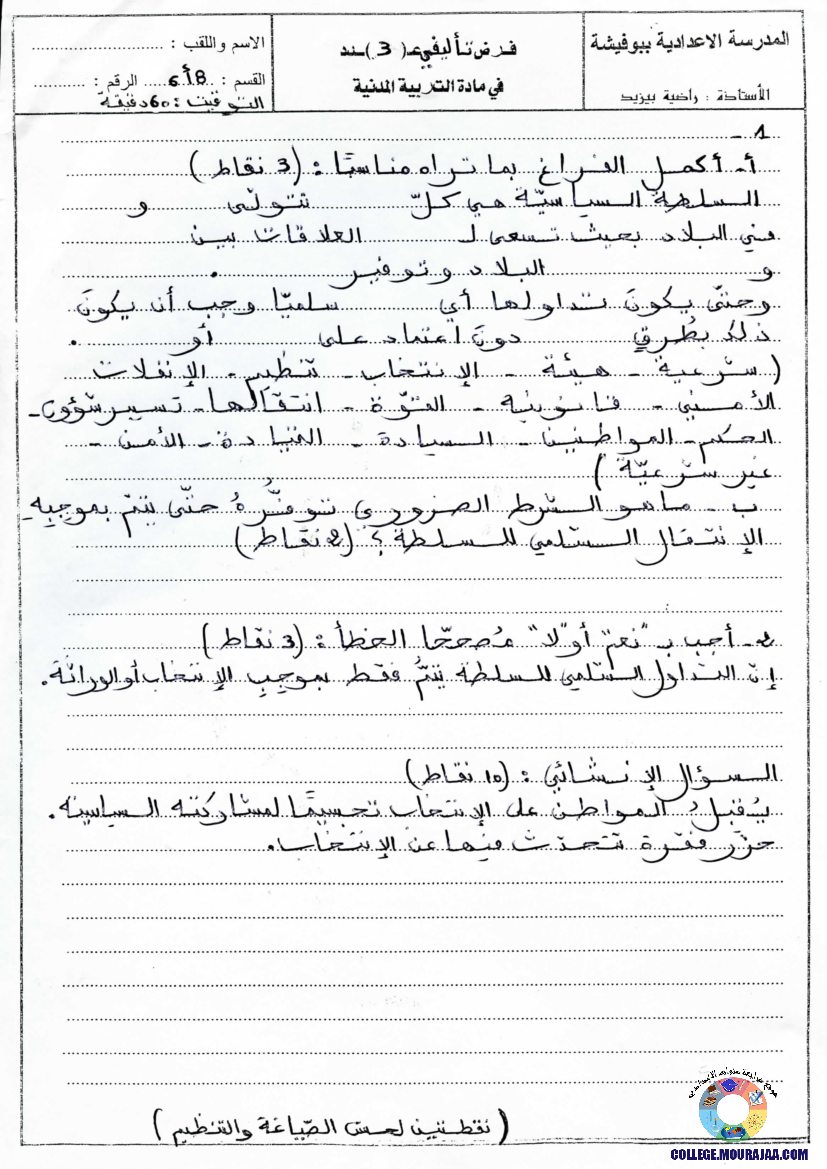 المدرسة الاعدادية ببوفيشة
الأستاذة : راضية بيزيد
فرض تأليفي عـ(3)ـدد
في مادة التربية المدنية
الاسم واللقب : ..............................
القسم : 8أ6..... الرقم : ............
التوقيت : 60 دقيقة
1-
أ- أكمل الفراغ بما تراه مناسبًا : (3 نقاط)
السلطة السياسيّة هي كلّ تتولّى و
في البلاد بحيث تسعى لـ العلاقات بين
و البلاد وتوفير .
وحتّى يكونَ تداولها أي سلميّا وجب أن يكونَ
ذلك بطُرقٍ دونَ اعتماد على أو .
(شرعية - هيئة - الإنتخاب - تنظيم - الإنفلات
الأمني - قانونية - القوّة - انتقالها - تسيير شؤون -
الحكم - المواطنين - السيادة - القيادة - الأمن -
غير شرعيّة)
ب - ما هو الشرط الضروري توفّرُهُ حتّى يتمّ بموجبِهِ
الإنتقال السّلمي للسلطة ؟ (2 نقاط)
2- أجب بـ "نعم أو "لا" مُصحّحا الخطأ : (3 نقاط)
إنّ التداول السّلمي للسلطة يتمُّ فقط بموجبِ الإنتخاب أو الوراثة.
السؤال الإنشائي : (10 نقاط)
يُقبلُ المواطن على الإنتخاب تجسيمًا لمشاركته السياسية.
حرّر فقرة تتحدّث فيها عن الإنتخاب.
(نقطتين لحسن الصّياغة والتنظيم)
موقع مراجعة
COLLEGE.MOURAJAA.COM